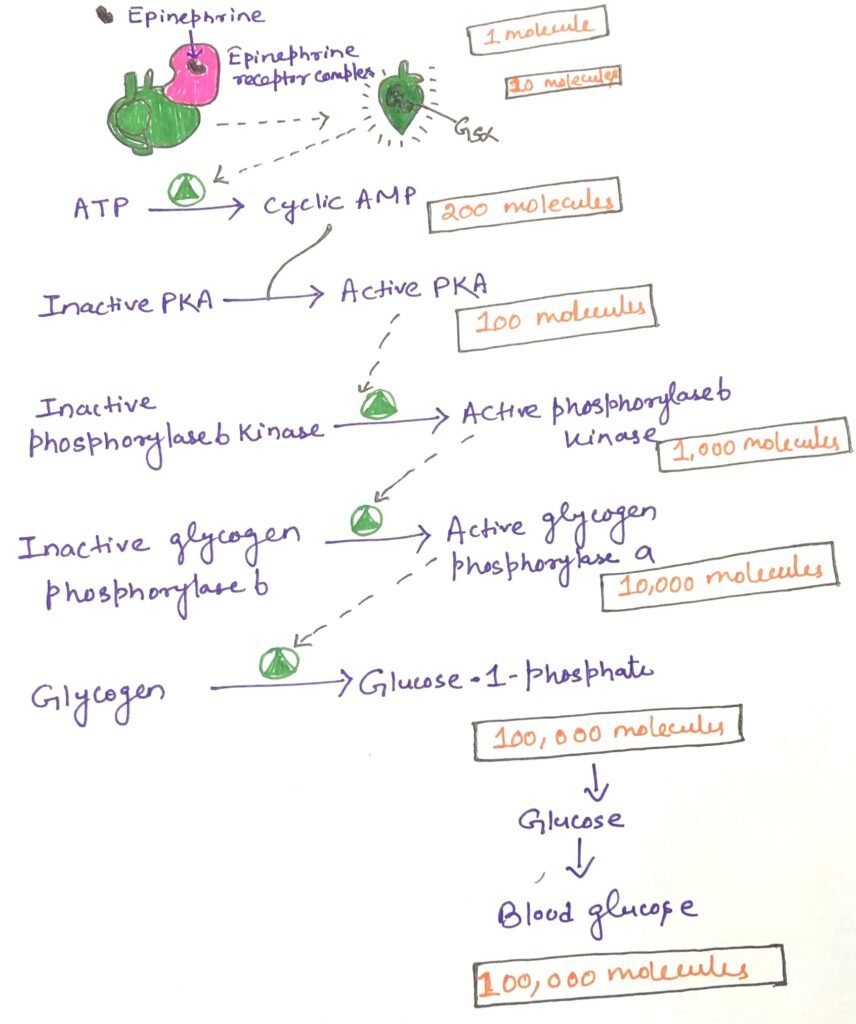 Epinephrine
1 molecule
Epinephrine
receptor complex
10 molecules
Gsα
ATP
Cyclic AMP
200 molecules
Inactive PKA
Active PKA
100 molecules
Inactive
phosphorylase b Kinase
Active phosphorylase b
Kinase
1,000 molecules
Inactive glycogen
phosphorylase b
Active glycogen
phosphorylase a
10,000 molecules
Glycogen
Glucose-1-phosphate
100,000 molecules
Glucose
Blood glucose
100,000 molecules